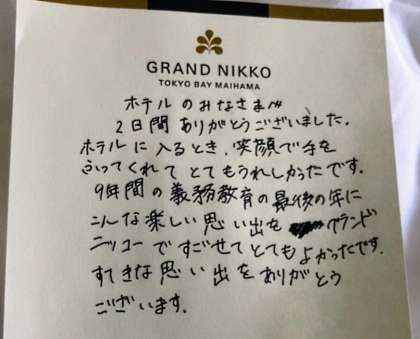 GRAND NIKKO
TOKYO BAY MAIHAMA
ホテルのみなさまへ
2日間ありがとうございました。
ホテルに入るとき、笑顔で手を
ふってくれてとてもうれしかったです。
9年間の義務教育の最後の年に
こんな楽しい思い出をグランド
ニッコーですごせてとてもよかったです。
すてきな思い出をありがとう
ございます。